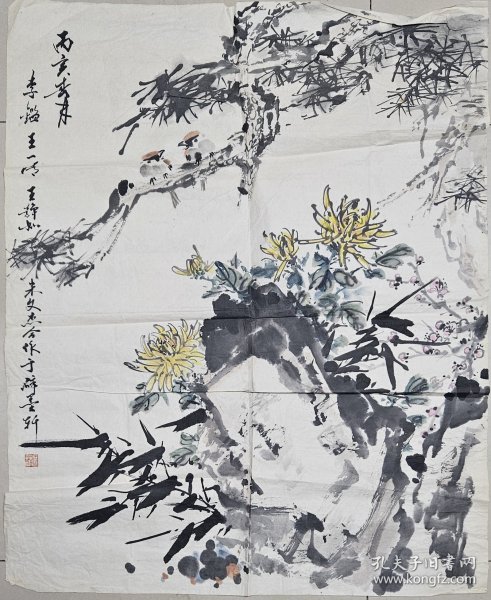 丙亥岁月
李铭王一鸣王静如朱文杰合作于醉墨轩
孔夫子旧书网
www.kongfz.com